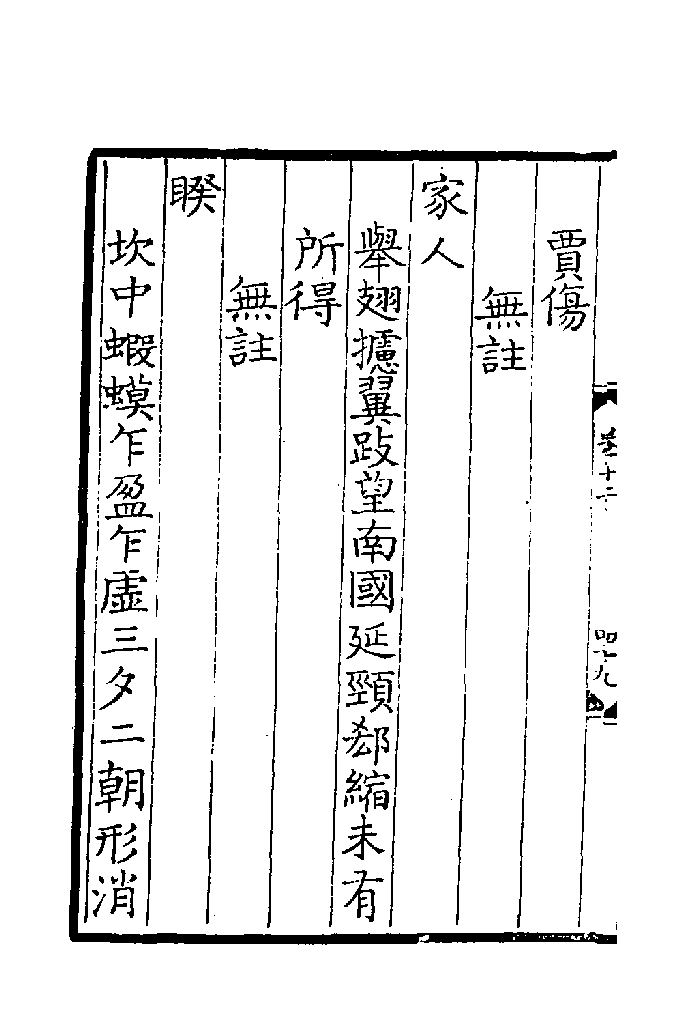 賈傷
無註
家人
舉翅攄翼跂望南國延頸郄縮未有
所得
無註
睽
坎中蝦蟆乍盈乍虛三夕二朝形消
卷十二
四十九